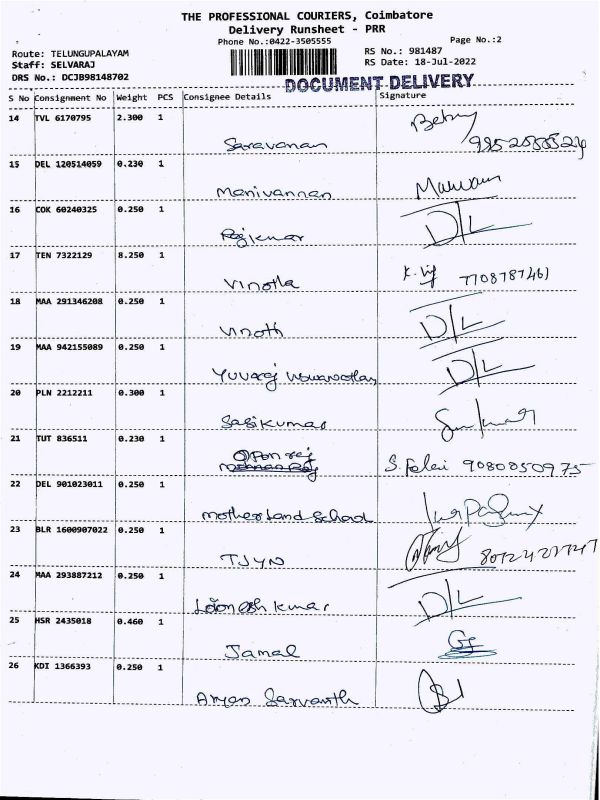 THE PROFESSIONAL COURIERS, Coimbatore
Delivery Runsheet - PRR
Phone No.:0422-3505555
Page No.:2
Route: TELUNGUPALAYAM
Staff: SELVARAJ
DRS No.: DCJB98148702
RS No.: 981487
RS Date: 18-Jul-2022
DOCUMENT DELIVERY
S No Consignment No Weight PCS Consignee Details Signature
14 TVL 6170795 2.300 1
Saravanan
15 DEL 120514059 0.230 1
Manivannan
16 COK 60240325 0.250 1
Rajkumar D/L
17 TEN 7322129 8.250 1
Vinotha 7708787461
18 MAA 291346208 0.250 1
Vinoth D/L
19 MAA 942155089 0.250 1
Yuvaraj D/L
20 PLN 2212211 0.300 1
Sasikumar
21 TUT 836511 0.230 1
Pon raj
S. 9080850975
22 DEL 901023011 0.250 1
motherland school
23 BLR 1600907022 0.250 1
TJYN
24 MAA 293887212 0.250 1
kumar D/L
25 HSR 2435018 0.460 1
Jamal
26 KDI 1366393 0.250 1
Aryan